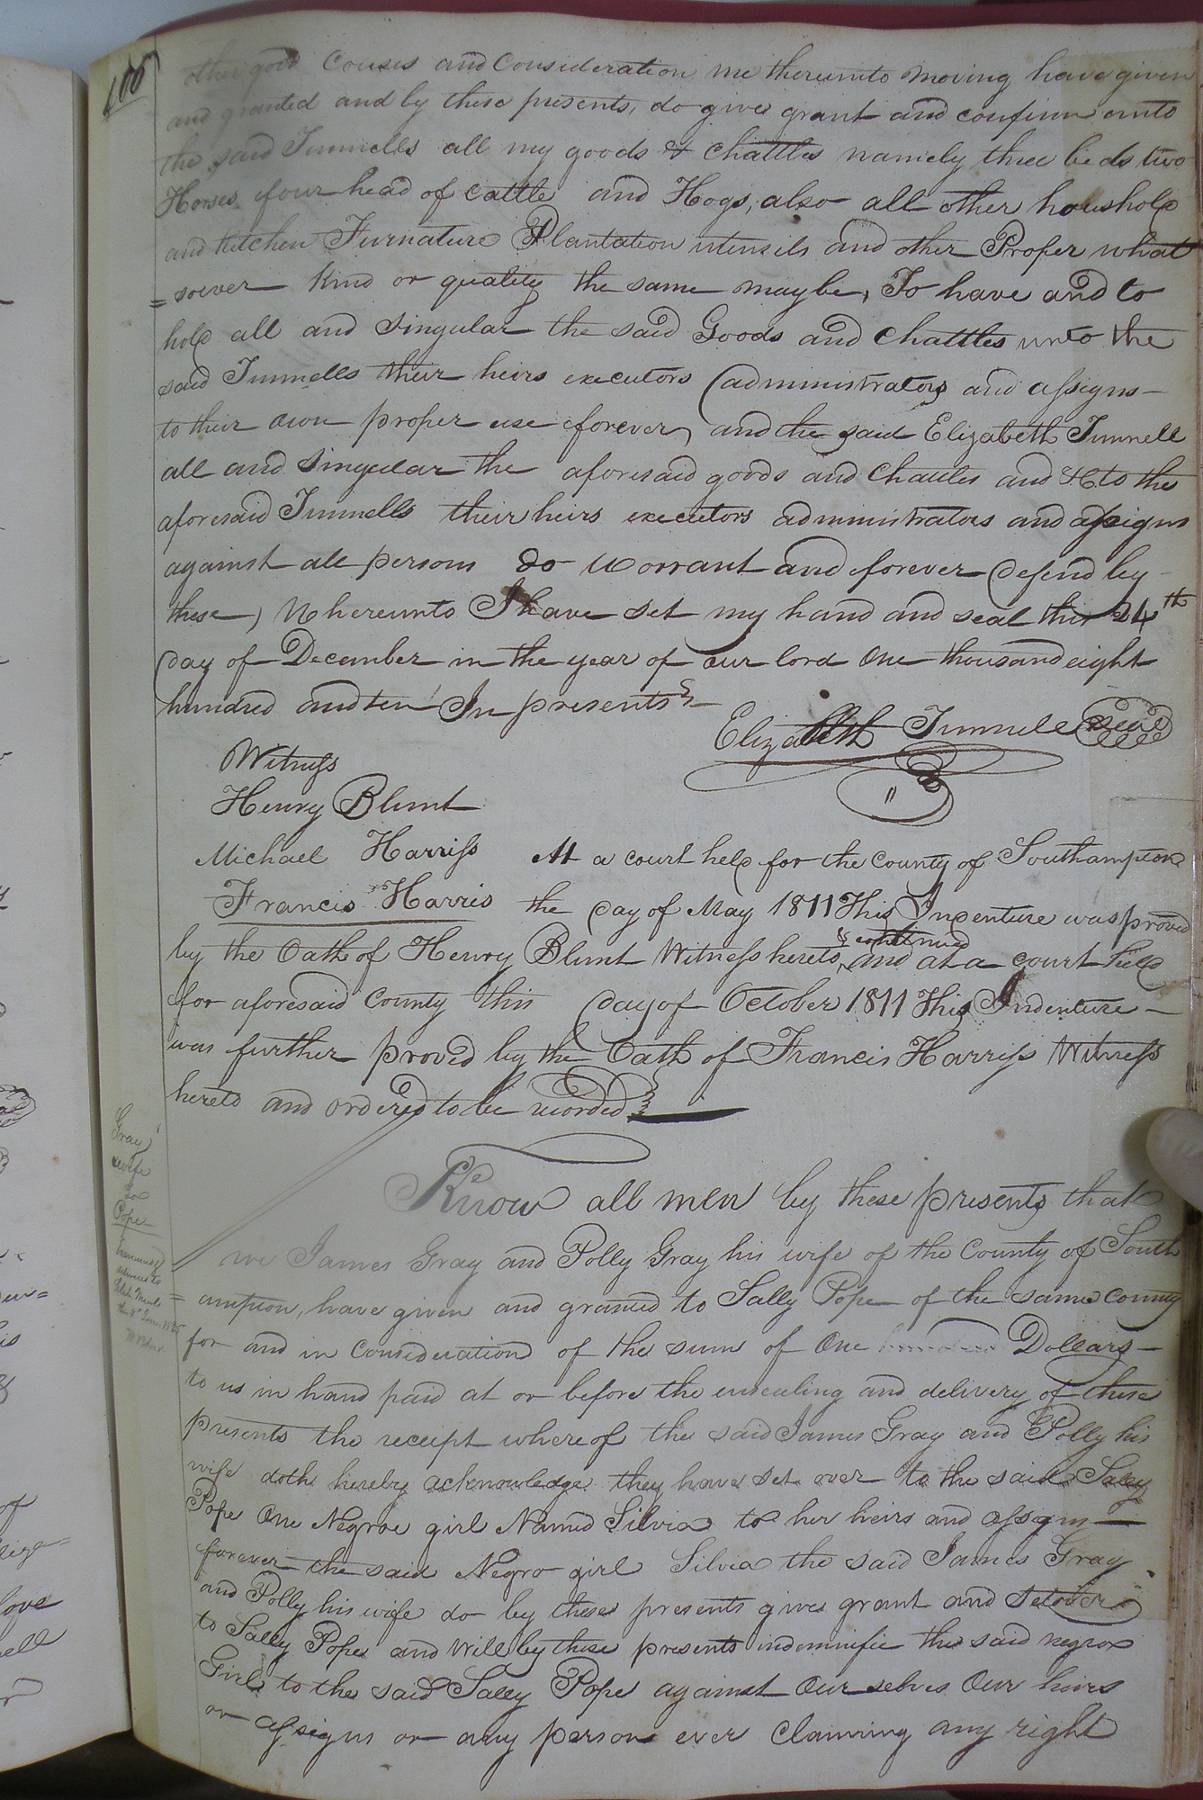 other good Causes and Consideration me thereunto moving have given
and granted and by these presents, do give grant and confirm unto
the said Tunnells all my goods & Chattles namely three beds two
Horses four head of Cattle and Hogs, also all other houshold
and Kitchen Furnature Plantation utensils and other Proper what
=soever kind or quality the same may be, To have and to
hold all and Singular the said Goods and Chattles unto the
said Tunnells their heirs executors administrators and assigns
to their own proper use forever, and the said Elizabeth Tunnell
all and Singular the aforesaid goods and Chattles and &C to the
aforesaid Tunnells their heirs executors administrators and assigns
against all persons do Worrant and forever Defend by
these, Whereunto I have set my hand and seal this 24th
day of December in the year of our lord One thousand eight
hundred and ten In presents
Elizabeth Tunnell Seal
Witness
Henry Blunt
Michael Harriss
Francis Harris
At a court held for the County of Southampton
the day of May 1811 This Indenture was proved
by the Oath of Henry Blunt Witness hereto & continued and at a court held
for aforesaid County this day of October 1811 This Indenture
was further proved by the Oath of Francis Harriss Witness
hereto and ordered to be recorded
Gray
wife
to
Pope
Know all men by these presents that
we James Gray and Polly Gray his wife of the County of South
=ampton, have given and granted to Sally Pope of the same County
for and in Consideration of the sum of One hundred Dollars
to us in hand paid at or before the ensealing and delivery of these
presents the receipt whereof the said James Gray and Polly his
wife doth hereby acknowledge they have set over to the said Sally
Pope One Negroe girl Named Silvia to her heirs and assigns
forever the said Negro girl Silvia the said James Gray
and Polly his wife do by these presents give grant and Setover
to Sally Pope and Will by these presents indemnifie the said negroe
Girl to the said Sally Pope against Our selves Our heirs
or assigns or any person ever Claiming any right